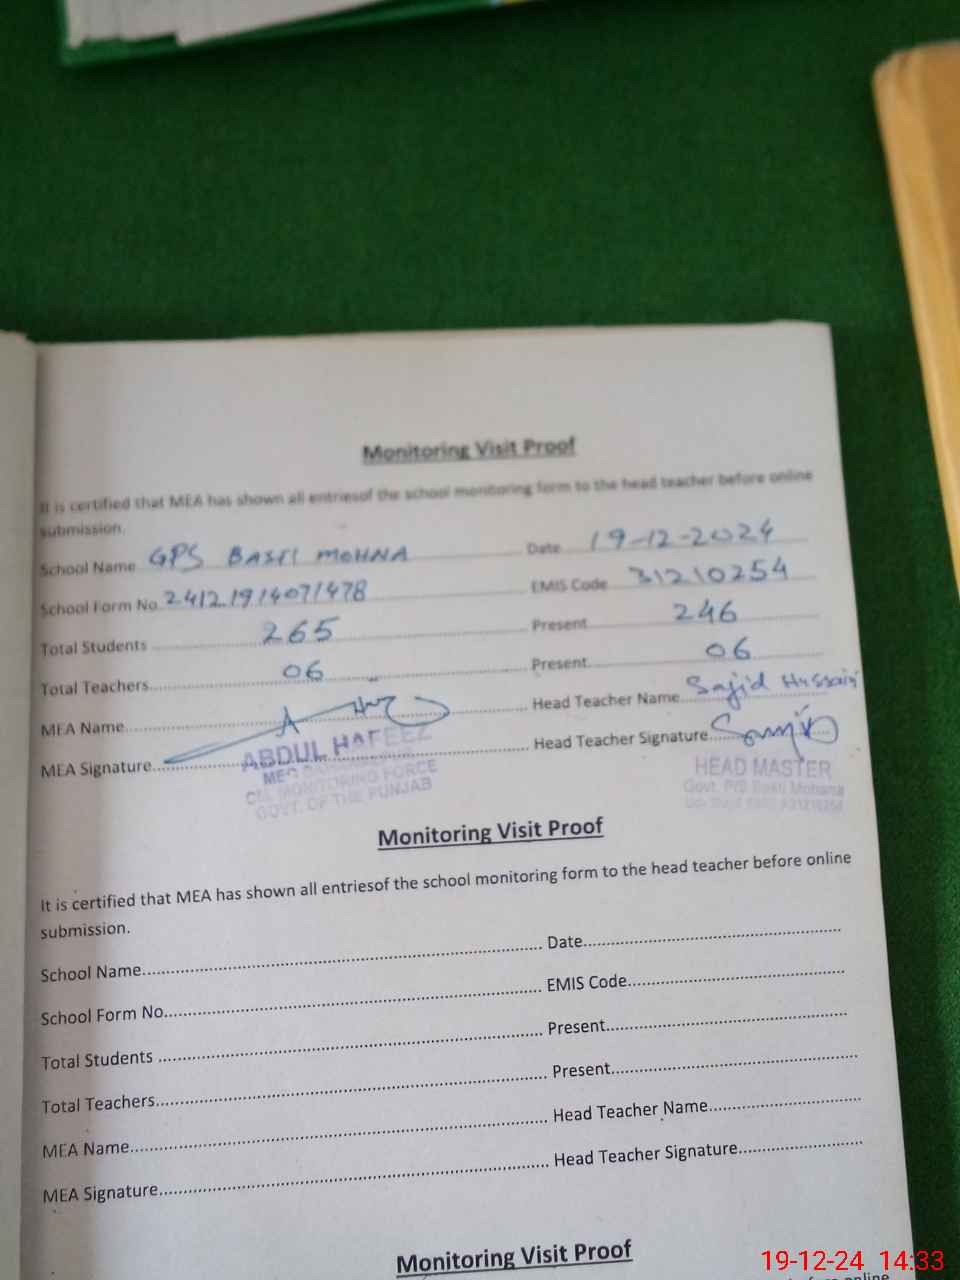 Monitoring Visit Proof
It is certified that MEA has shown all entriesof the school monitoring form to the head teacher before online
submission.
School Name GPS BASTI MOHNA Date 19-12-2024
School Form No 2412191407/478 EMIS Code 31210254
Total Students 265 Present 246
Total Teachers 06 Present 06
MEA Name Head Teacher Name Sajid Hussain
MEA Signature Head Teacher Signature
ABDUL HAFEEZ
MONITORING FORCE
GOVT. OF THE PUNJAB
HEAD MASTER
Govt. P/S Basti Mohana
Monitoring Visit Proof
It is certified that MEA has shown all entriesof the school monitoring form to the head teacher before online
submission.
School Name Date
School Form No. EMIS Code
Total Students Present
Total Teachers Present
MEA Name Head Teacher Name
MEA Signature Head Teacher Signature
Monitoring Visit Proof
before online
19-12-24 14:33